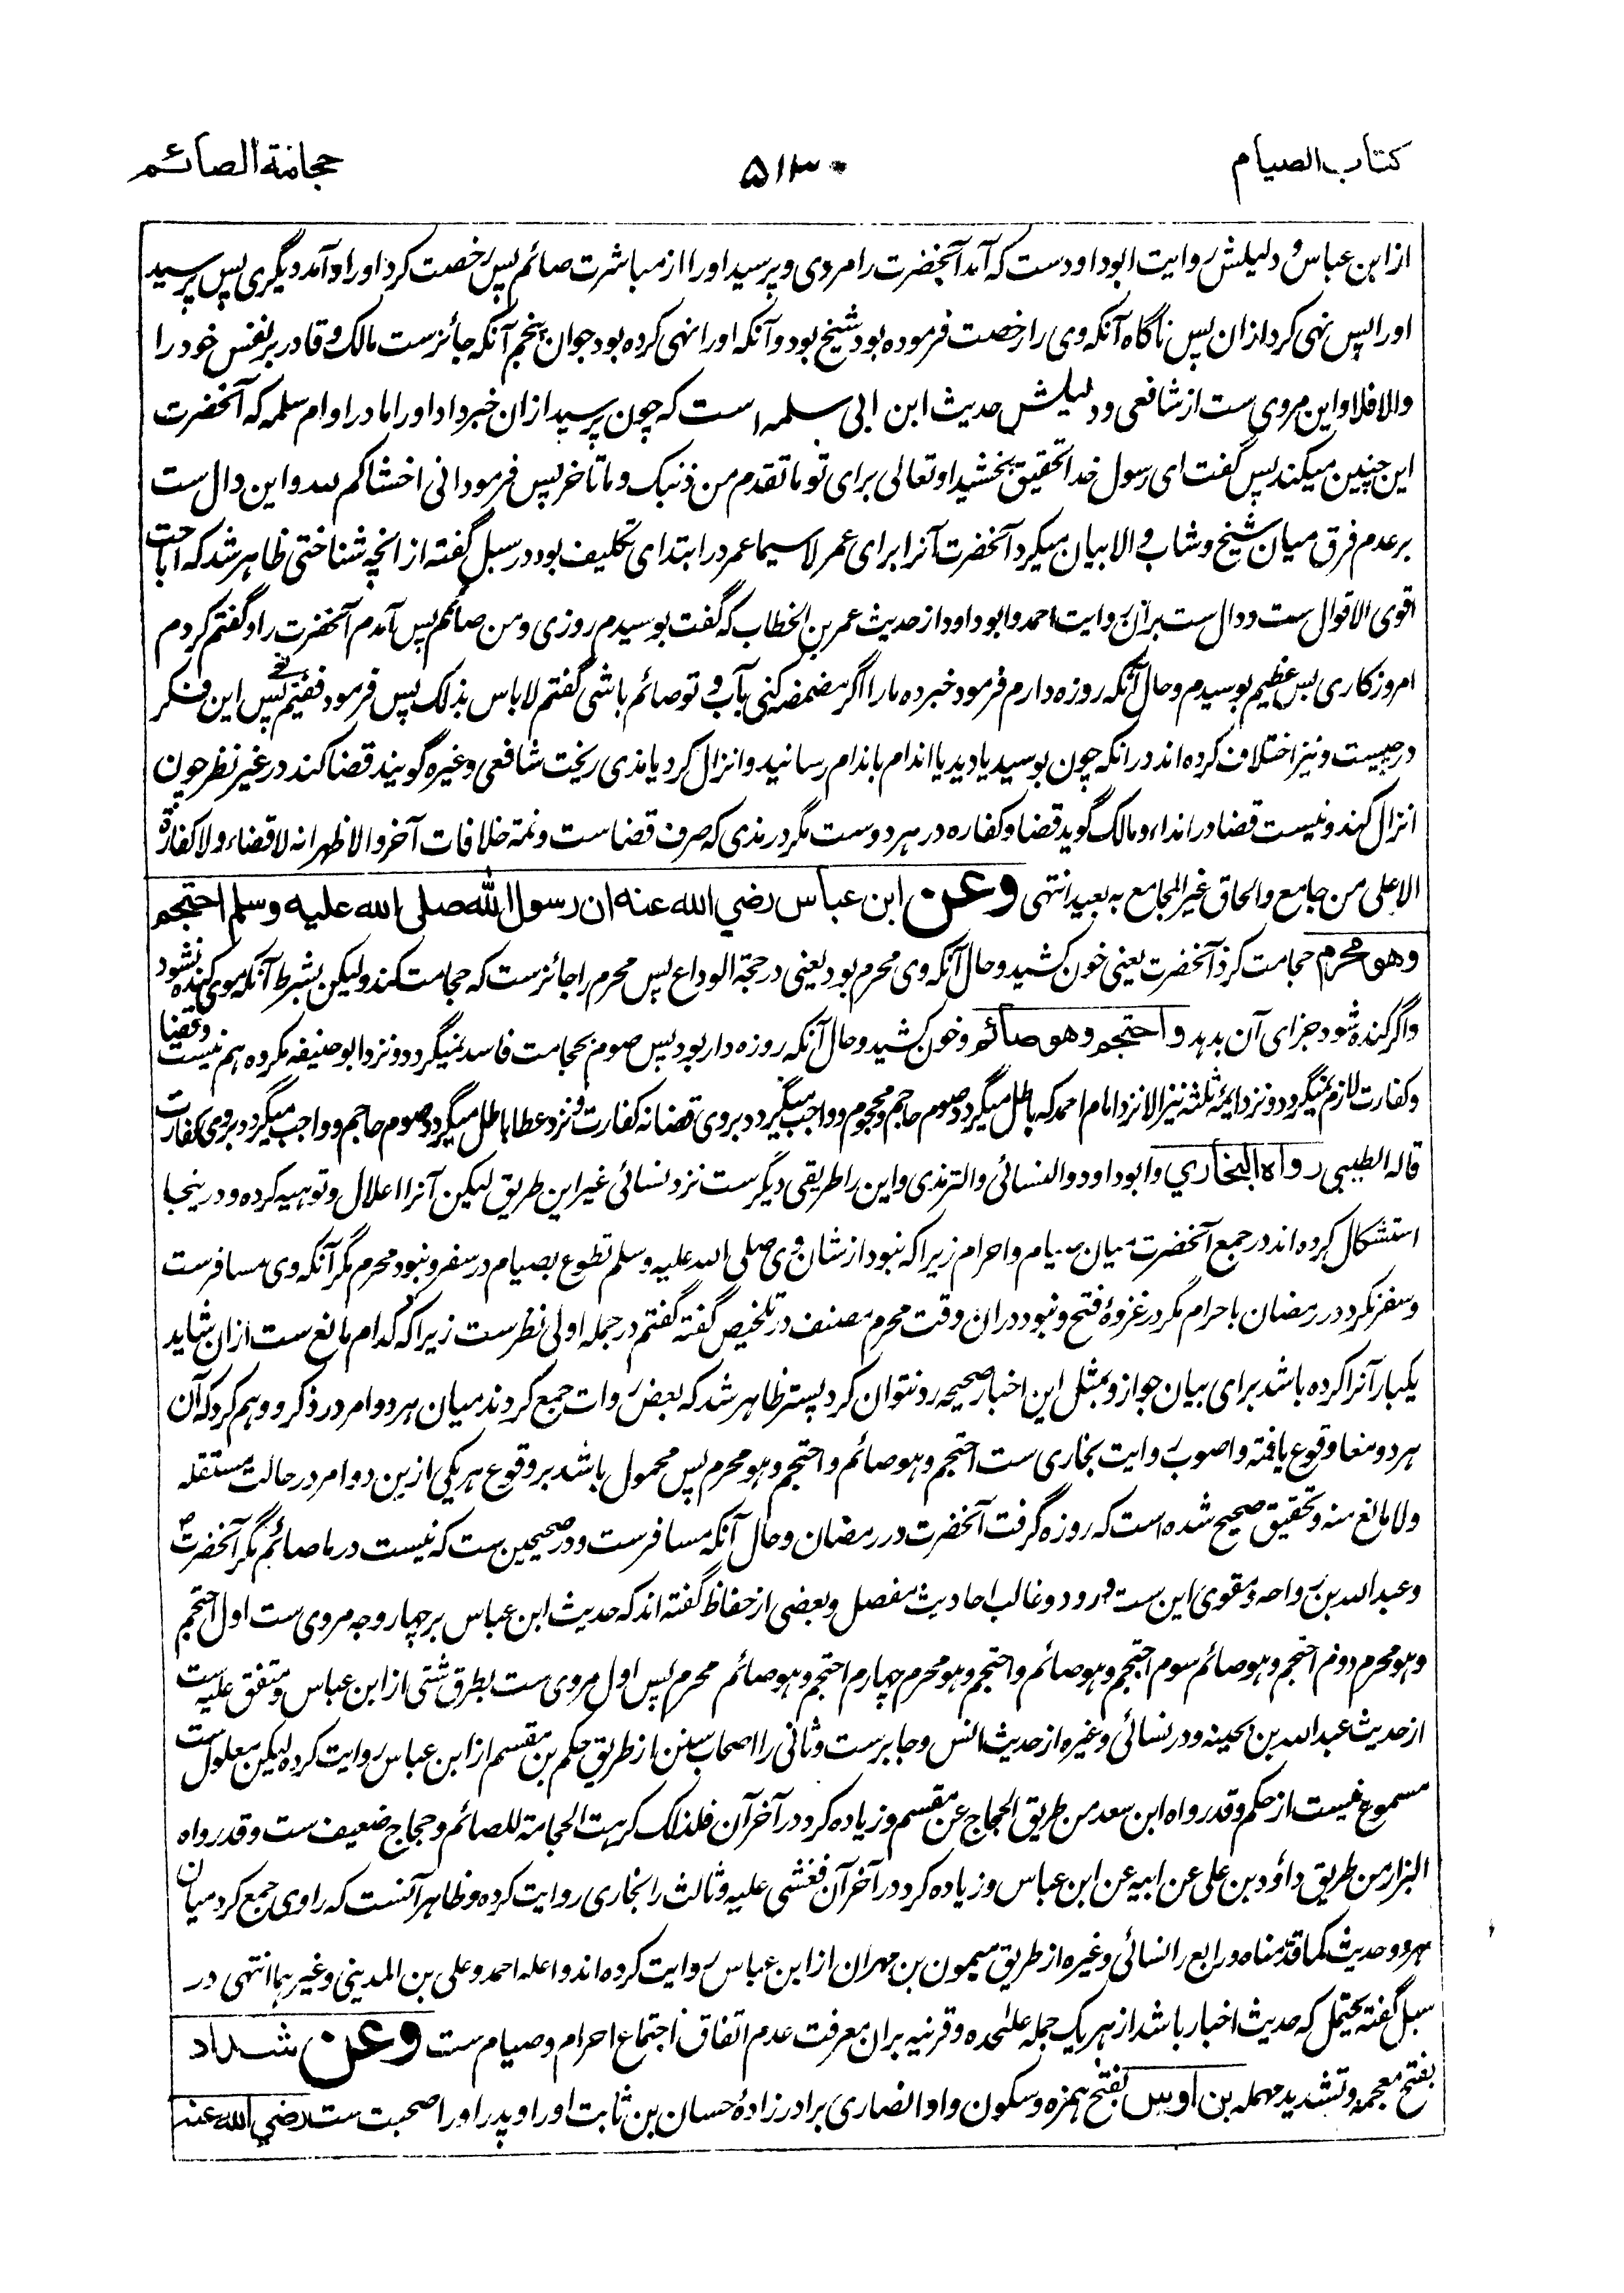 کتاب الصیام
۵۱۳۰
حجامة الصائم
از ابن عباس و دلیلش روایت ابوداودست که آمد آنحضرت را مردی و پرسید او را از مباشرت صائم پس رخصت کرد او را و آمد دیگری پس پرسید
او را پس نهی کرد ازان پس ناگاه آنکه وی را رخصت فرموده بود شیخ بود و آنکه او را نهی کرده بود جوان پنجم آنکه جائزست مالک و قادر بر نفس خود را
والا فلا و این مروی ست از شافعی و دلیلش حدیث ابن ابی سلمه است که چون پرسید ازان خبر داد او را مادر او ام سلمه که آنحضرت
این چنین میکند پس گفت ای رسول خدا تحقیق بخشید او تعالی برای تو ما تقدم من ذنبک و ما تاخر پس فرمود انی اخشاکم لله و این دال ست
بر عدم فرق میان شیخ و شاب والا بیان میکرد آنحضرت آنرا برای عمر لاسیما عمر در ابتدای تکلیف بود در سبل گفته از آنچه شناختی ظاهر شد که اباحت
اقوی الاقوال ست و دال ست بران روایت احمد و ابوداود از حدیث عمر بن الخطاب که گفت بوسیدم روزی و من صائم پس آمدم آنحضرت را و گفتم کردم
امروز کاری بس عظیم بوسیدم و حال آنکه روزه دارم فرمود خبر ده ما را اگر مضمضه کنی بآب و تو صائم باشی گفتم لا باس بذلک پس فرمود ففیم پس این فکر
در چیست و نیز اختلاف کرده اند در انکه چون بوسید یا دید یا اندام باندام رسانید و انزال کرد یا مذی ریخت شافعی و غیره گویند قضا کند در غیر نظر چون
انزال کند و نیست قضا در امذاء و مالک گوید قضا و کفاره در هر دو ست مگر در مذی که صرف قضاست و ثمة خلافات آخر و الاظهر انه لا قضاء و لا کفارة
الا علی من جامع و الحاق غیر المجامع به بعید انتهی وعن ابن عباس رضي الله عنه ان رسول الله صلى الله عليه وسلم احتجم
وهو محرم حجامت کرد آنحضرت یعنی خون کشید و حال آنکه وی محرم بود یعنی در حجة الوداع پس محرم را جائزست که حجامت کند و لیکن بشرط آنکه موی کنده نشود
و اگر کنده شود جزای آن بدهد واحتجم وهو صائم و خون کشید و حال آنکه روزه دار بود پس صوم بحجامت فاسد نمیگردد و نزد ابوحنیفه مکروه هم نیست و قضا
و کفارت لازم نمیگردد و نزد ایمه ثلثه نیز الا نزد امام احمد که باطل میگردد صوم حاجم و محجوم و واجب میگردد بروی قضا نه کفارت و نزد عطا باطل میگردد صوم حاجم و واجب میگردد بروی کفارت
قاله الطیبی رواه البخاري و ابوداود و النسائی و الترمذی و این را طریقی دیگرست نزد نسائی غیر این طریق لیکن آنرا اعلال و توهیه کرده و درینجا
استشکال کرده اند در جمع آنحضرت میان صیام و احرام زیرا که نبود از شان وی صلی الله علیه وسلم تطوع بصیام در سفر و نبود محرم مگر آنکه وی مسافرست
و سفر نکرد در رمضان باحرام مگر در غزوهٔ فتح و نبود دران وقت محرم مصنف در تلخیص گفته گفتم در جمله اولی نظرست زیرا که کدام مانع ست ازان شاید
یکبار آنرا کرده باشد برای بیان جواز و بمثل این اخبار صحیحه رد نتوان کرد پستر ظاهر شد که بعض روات جمع کردند میان هر دو امر در ذکر و وهم کرد که آن
هر دو معا وقوع یافته و اصوب روایت بخاری ست احتجم وهو صائم و احتجم وهو محرم پس محمول باشد بر وقوع هر یکی ازین دو امر در حالت مستقله
ولا مانع منه و تحقیق صحیح شده است که روزه گرفت آنحضرت در رمضان و حال آنکه مسافرست و در صحیحین ست که نیست در ما صائم مگر آنحضرت ص
و عبدالله بن رواحه و مقوی این ست ورود و غالب احادیث مفصل و بعضی از حفاظ گفته اند که حدیث ابن عباس بر چهار وجه مروی ست اول احتجم
وهو محرم دوم احتجم وهو صائم سوم احتجم وهو صائم و احتجم وهو محرم چهارم احتجم وهو صائم محرم پس اول مروی ست بطرق شتی از ابن عباس و متفق علیه ست
از حدیث عبدالله بن بحینه و در نسائی و غیره از حدیث انس و جابرست و ثانی را اصحاب سنن از طریق حکم بن مقسم از ابن عباس روایت کرده لیکن معلول ست
مسموع نیست از حکم و قد رواه ابن سعد من طریق الحجاج عن مقسم و زیاده کرد در آخر آن فلذلک کرهت الحجامة للصائم و حجاج ضعیف ست و قد رواه
البزار من طریق داؤد بن علی عن ابیه عن ابن عباس و زیاده کرد در آخر آن فغشی علیه و ثالث را بخاری روایت کرده و ظاهر آنست که راوی جمع کرد میان
هر دو حدیث کما قدمناه و رابع را نسائی و غیره از طریق میمون بن مهران از ابن عباس روایت کرده اند و اعله احمد و علی بن المدینی و غیرهما انتهی در
سبل گفته یحتمل که حدیث اخبار باشد از هر یک جمله علٰحده و قرنیه بران معرفت عدم اتفاق اجتماع احرام و صیام ست وعن شداد
بفتح معجمه و تشدید مهمله بن اوس بفتح همزه و سکون واو انصاری برادرزادهٔ حسان بن ثابت او را و پدر او را صحبت ست رضي الله عنه